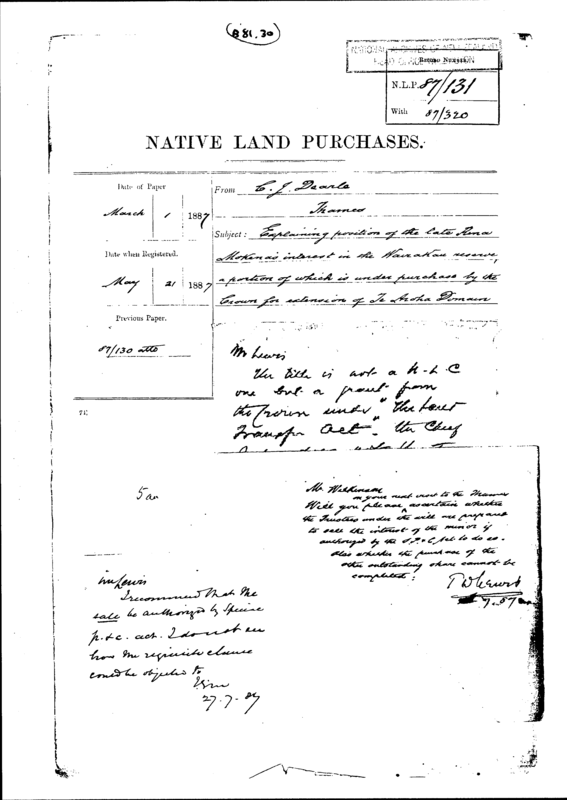 (B 81.30)
NATIONAL ARCHIVES OF NEW ZEALAND
HEAD OFFICE
N.L.P. 87/131
With 87/320
NATIVE LAND PURCHASES.
Date of Paper
March 1 1887
Date when Registered.
May 21 1887
Previous Paper.
87/130 atto
From C. J. Dearle
Thames
Subject: Explaining position of the late Rina
Mokena's interest in the Wairakau reserve,
a portion of which is under purchase by the
Crown for extension of Te Aroha Domain
Mr Lewis
The title is not a N.L.C
one but a grant from
the Crown under "The Land
Transfer Act". The Chief
5 an
Mr. Wilkinson
on your next visit to the Thames
Will you please ascertain whether
the Trustees under the will are prepared
to sell the interest of the minor if
authorized by the S.P. & C. Act to do so.
Also whether the purchase of the
other outstanding share cannot be
completed?
T W Lewis
7.87
Mr Lewis
I recommend that the
sale be authorized by Special
p. & c. act. I do not see
how the requisite clause
could be objected to
27.7.87